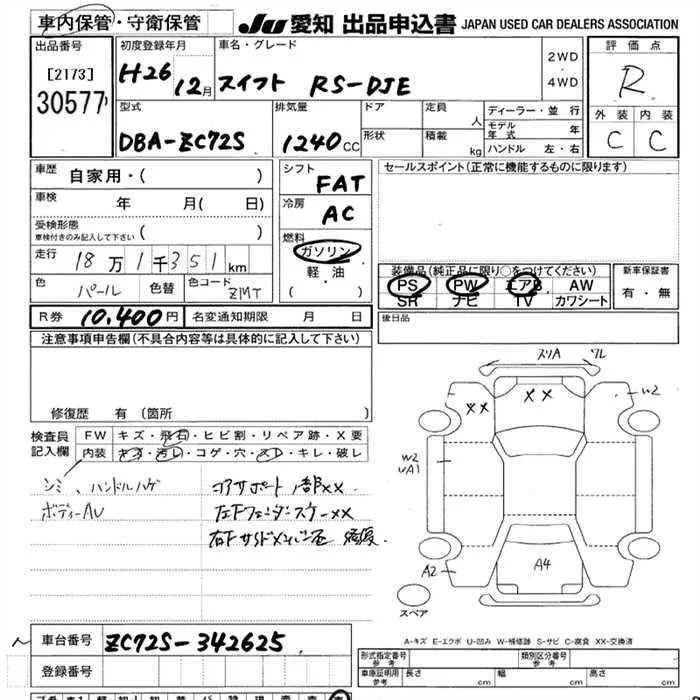 車内保管・守衛保管 JU 愛知 出品申込書 JAPAN USED CAR DEALERS ASSOCIATION
出品番号 初度登録年月 車名・グレード 2WD 評価点
[2173] H26 12月 スイフト RS-DJE ・ R
30577 4WD
型式 排気量 ドア 定員 人 ディーラー・並行 外装 内装
DBA-ZC72S 1240CC 形状 積載 kg モデル年式 年 C C
ハンドル 左・右
車歴 自家用・( ) シフト FAT セールスポイント(正常に機能するものに限ります)
車検 年 月( 日) 冷房 AC
受検形態 車検付きのみ記入して下さい ( ) 燃料 ガソリン
走行 18万1千351km 軽・油 装備品(純正品に限り○をつけてください) 新車保証書
色 パール 色替 色コード ZMT ( ) PS PW エアB AW 有・無
SR ナビ TV カワシート
R券 10,400円 名変通知期限 月 日 後日品
注意事項申告欄(不具合内容等は具体的に記入して下さい)
修復歴 有(箇所
検査員記入欄 FW キズ・飛石・ヒビ割・リペア跡・X要
内装 キズ・汚レ・コゲ・穴・スレ・キレ・破レ
シミ、ハンドルハゲ コアサポート一部XX
ボディーAU
スリA ワレ
XX XX W2
W2
UA1
A2 A4
スペア
A-キズ E-エクボ U-凹み W-補修跡 S-サビ C-腐食 XX-交換済
車台番号 ZC72S-342625
登録番号
形式指定番号 参考 類別区分番号 参考
車庫証明用 参考 長さ cm 幅 cm 高さ cm